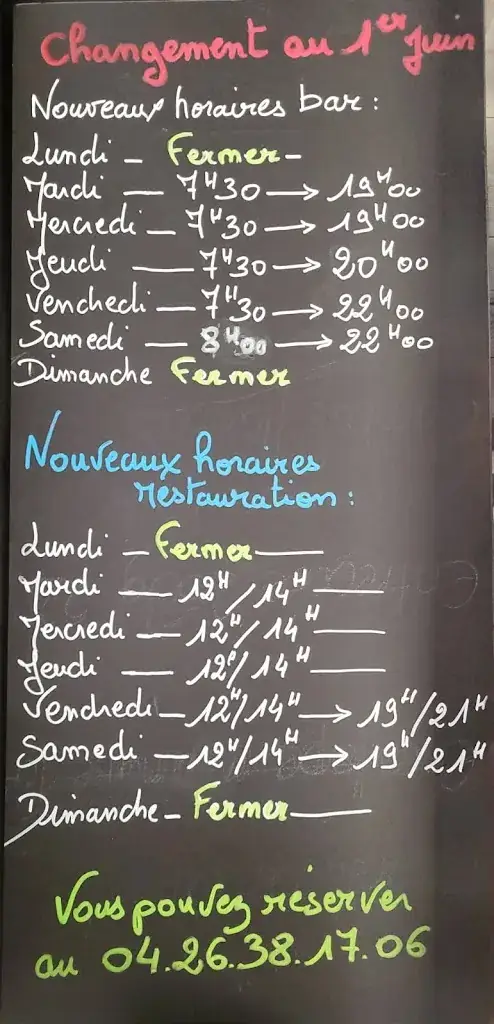 Changement au 1er Juin
Nouveaux horaires bar :
Lundi - Fermer -
Mardi - 7H30 → 19H00
Mercredi - 7H30 → 19H00
Jeudi - 7H30 → 20H00
Vendredi - 7H30 → 22H00
Samedi - 8H00 → 22H00
Dimanche Fermer
Nouveaux horaires
restauration :
Lundi - Fermer -
Mardi - 12H/14H -
Mercredi - 12H/14H -
Jeudi - 12H/14H -
Vendredi - 12H/14H → 19H/21H
Samedi - 12H/14H → 19H/21H
Dimanche - Fermer -
Vous pouvez réserver
au 04.26.38.17.06